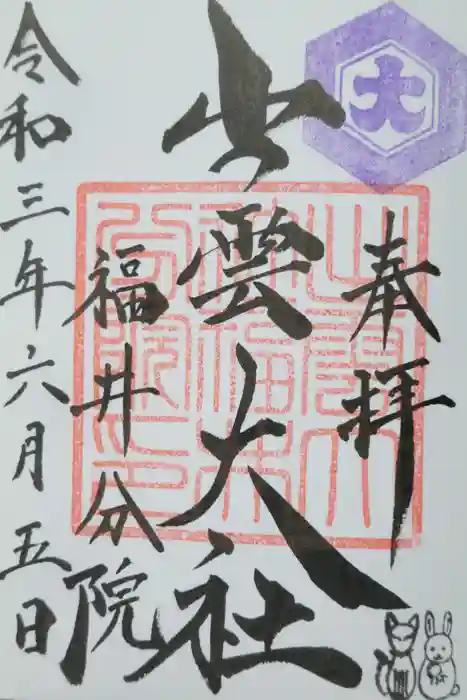 大
奉拝
出雲大社
福井分院
令和三年六月五日